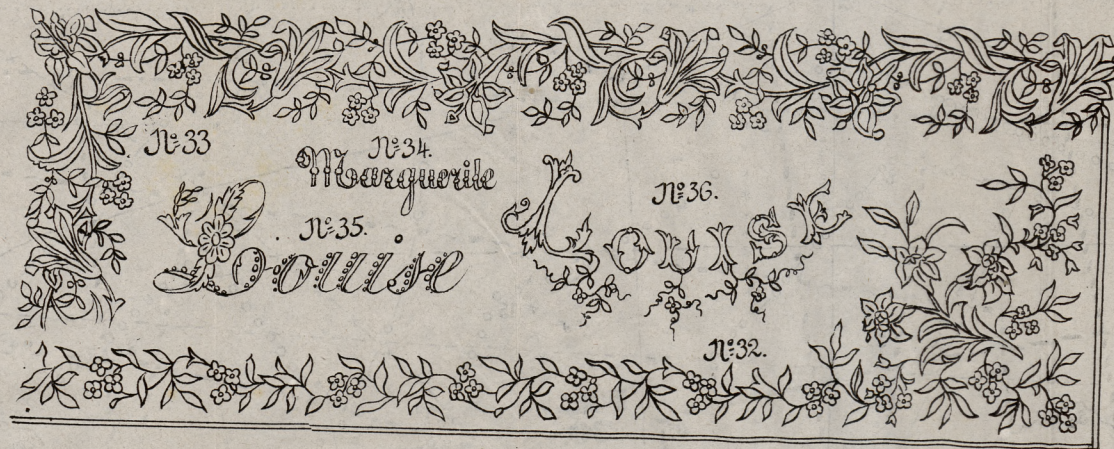 Nº33
Nº34.
Marguerite
Nº35.
Louise
Nº36.
Louise
Nº32.